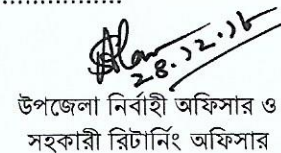 ..................
28.12.18
উপজেলা নির্বাহী অফিসার ও
সহকারী রিটার্নিং অফিসার